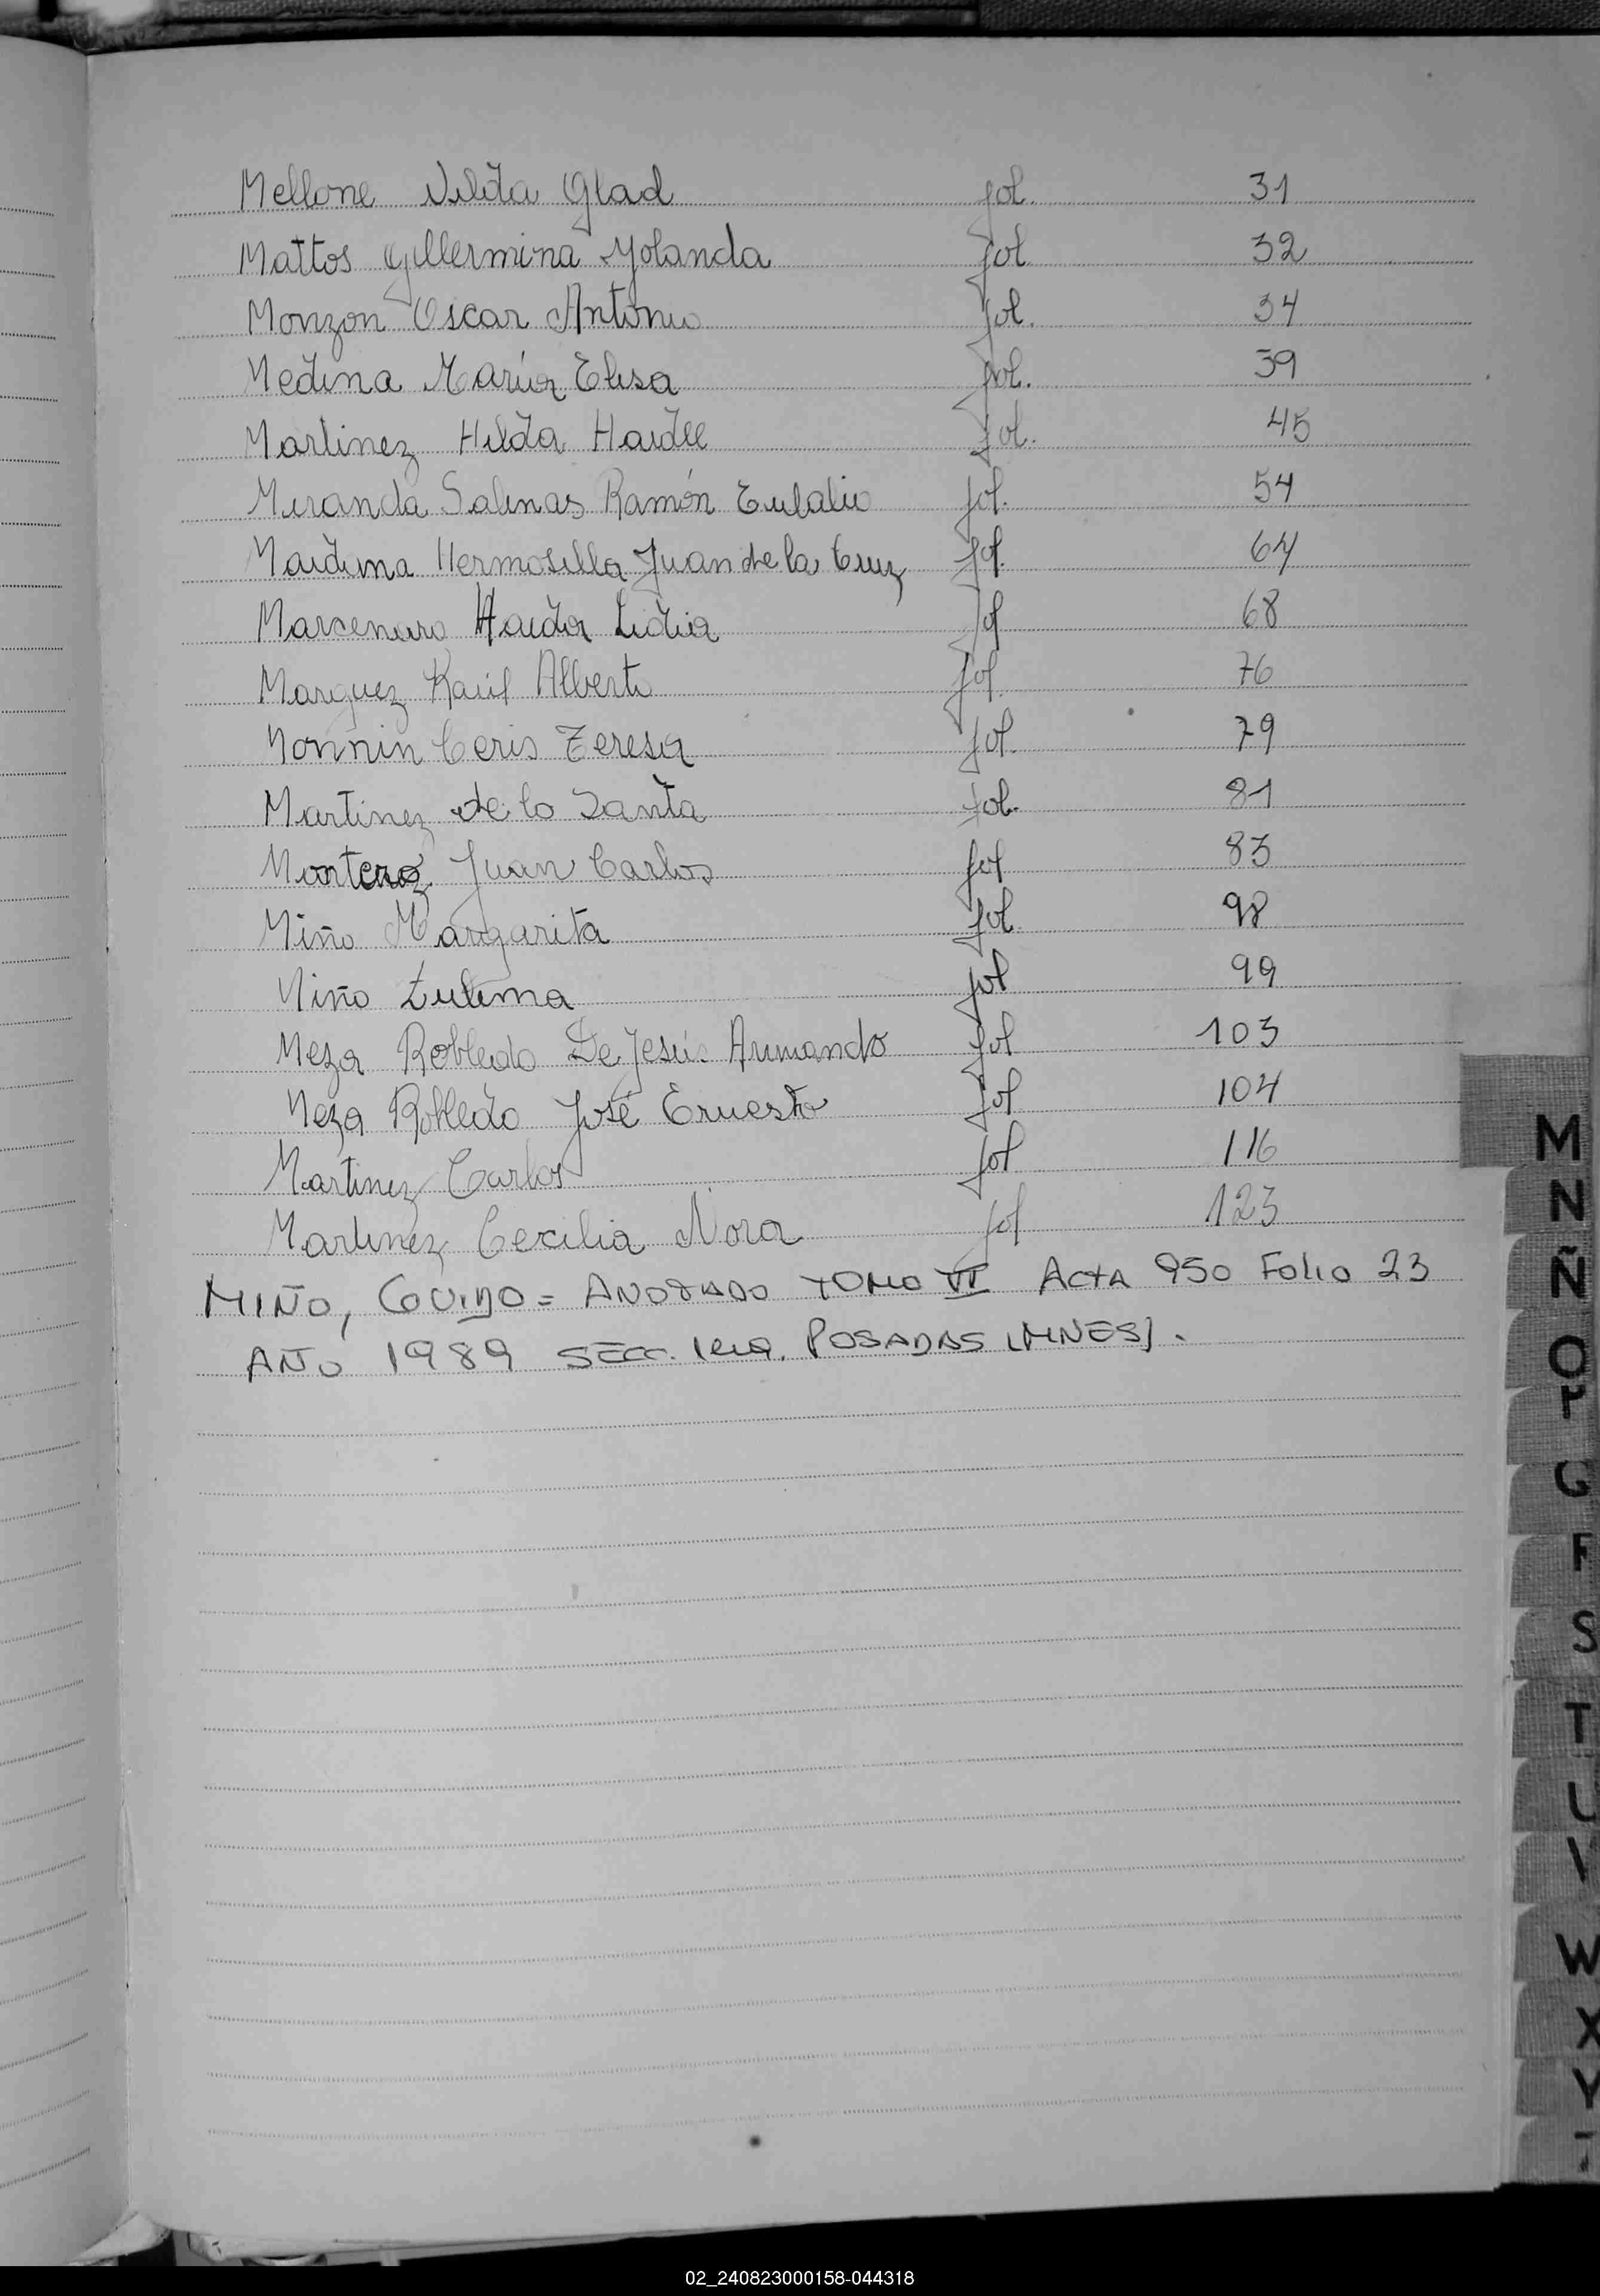 Mellone Nelida Glad fol. 31
Mattos Gillermina Yolanda fol 32
Monzon Oscar Antonio fol. 34
Medina María Elisa fol. 39
Martinez Hilda Haidee fol. 45
Miranda Salinas Ramón Eulalio fol. 54
Maiduna Hermosilla Juan de la Cruz fol. 64
Marcenaro Haida Lidia fol 68
Marquez Raúl Alberto fol. 76
Monnin Ceris Teresa fol. 79
Martinez de lo Santa fol. 81
Juan Carlos fol 83
Miño Margarita fol. 98
Miño Zulema fol 99
Meza Robledo De Jesús Armando fol 103
Meza Robledo José Ernesto fol 104
Martinez Carlos fol 116
Martinez Cecilia Nora fol 123
MIÑO, = ANOTADO TOMO VI ACTA 950 FOLIO 23
AÑO 1989 SECC. 1era. POSADAS (MNES).
M
N
Ñ
O
P
S
T
U
V
W
X
Y
02_240823000158-044318